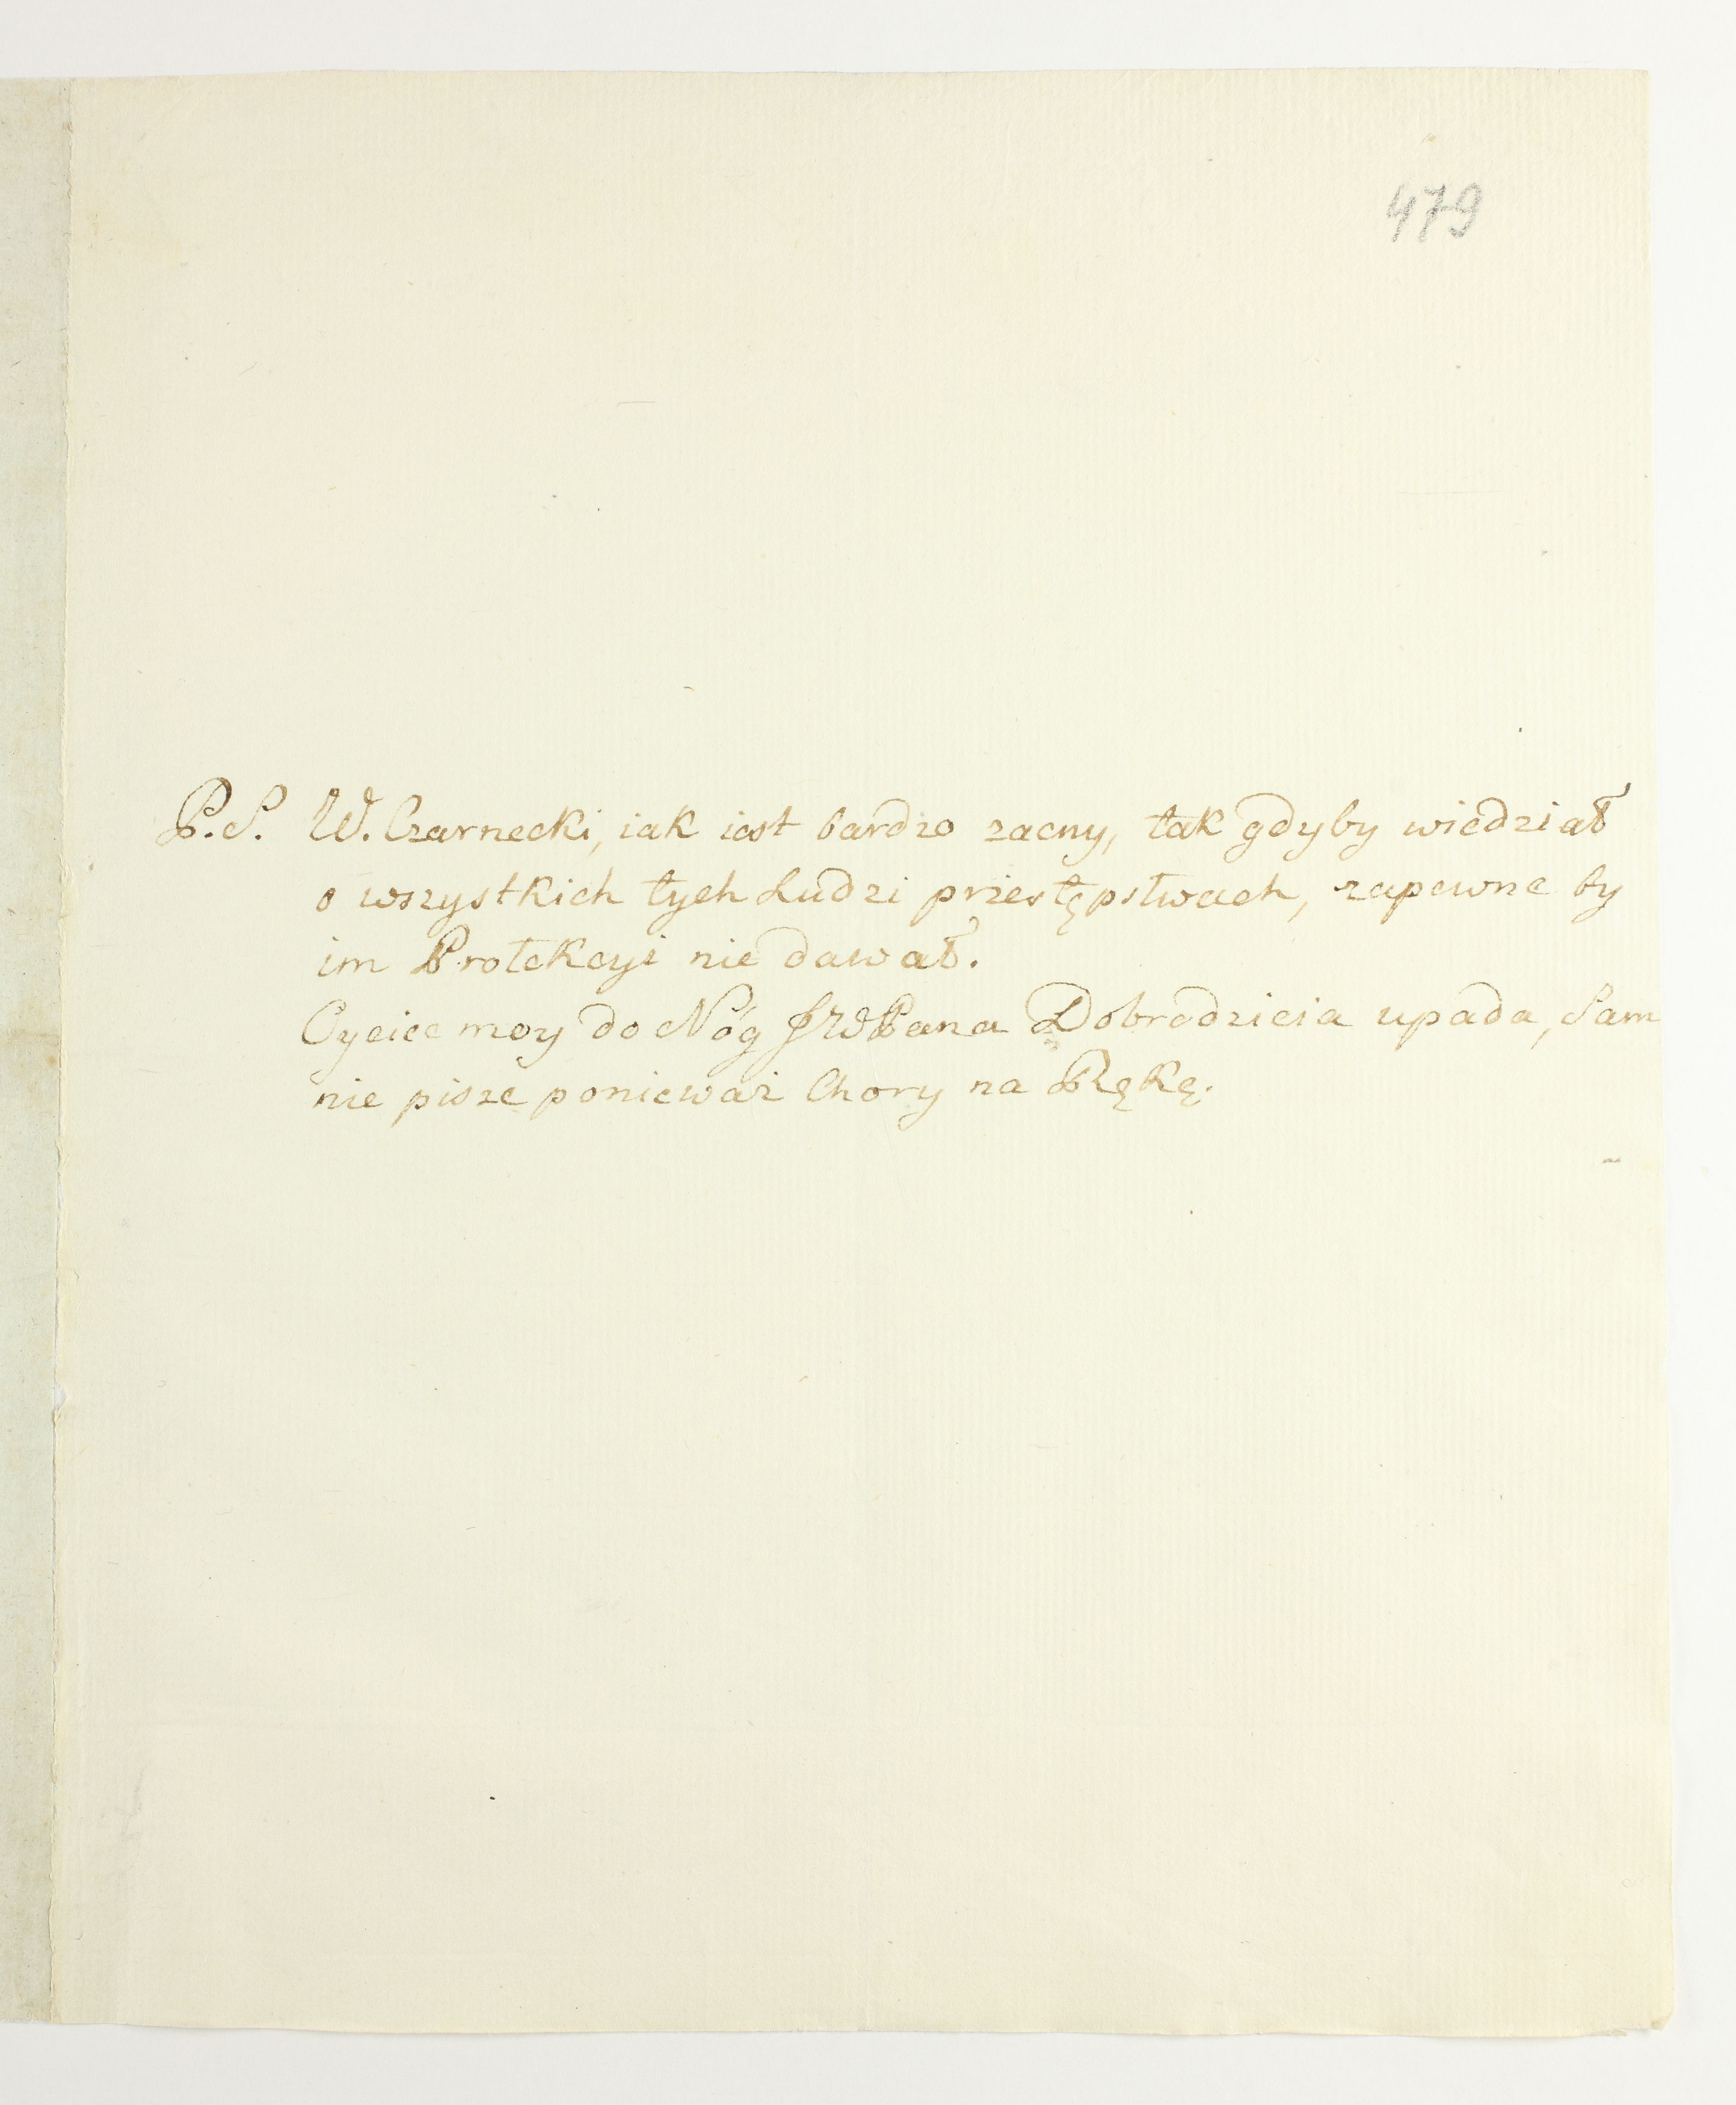 479
P.S. W. Czarnecki, iak iest bardzo zacny, tak gdyby wiedział
o wszystkich tych Ludzi przestępstwach, zapewne by
im Protekcyi nie dawał.
Oyciec moy do Nóg JWPana Dobrodzieia upada, Sam
nie pisze ponieważ Chory na Rękę.